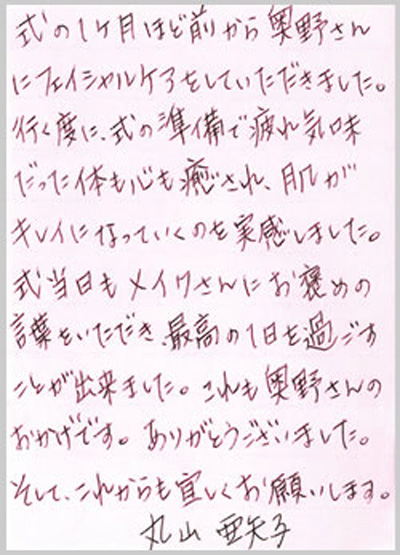 式の1ケ月ほど前から奥野さん
にフェイシャルケアをしていただきました。
行く度に、式の準備で疲れ気味
だった体も心も癒され、肌が
キレイになっていくのを実感しました。
式当日もメイクさんにお褒めの
言葉をいただき、最高の1日を過ごす
ことが出来ました。これも奥野さんの
おかげです。ありがとうございました。
そして、これからも宜しくお願いします。
丸山 亜矢子